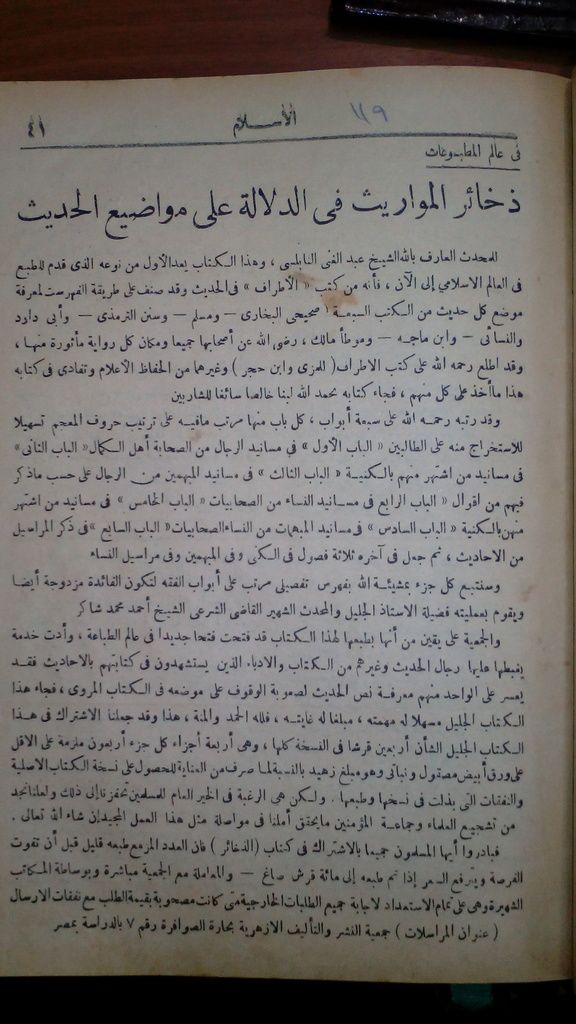 ١١٩
الأسلام
٤١
فى عالم المطبوعات
ذخائر المواريث فى الدلالة على مواضيع الحديث
للمحدث العارف بالله الشيخ عبد الغنى النابلسى ، وهذا الكتاب يعد الأول من نوعه الذى قدم للطبع
فى العالم الاسلامى إلى الآن ، فأنه من كتب « الأطراف » فى الحديث وقد صنف على طريقة الفهرست لمعرفة
موضع كل حديث من الكتب السبعة ؛ صحيحى البخارى — ومسلم — وسنن الترمذى — وأبى دارد
والنسائى — وابن ماجه — وموطأ مالك ، رضى الله عن أصحابها جميعا ومكان كل رواية مأثورة منها ،
وقد اطلع رحمه الله على كتب الاطراف ( للمزى وابن حجر ) وغيرهما من الحفاظ الأعلام وتفادى فى كتابه
هذا مآأخذ على كل منهم ، فجاء كتابه بحمد الله لبنا خالصا سائغا للشاربين
وقد رتبه رحمه الله على سبعة أبواب ، كل باب منها مرتب مافيه على ترتيب حروف المعجم تسهيلا
للاستخراج منه على الطالبين « الباب الأول » فى مسانيد الرجال من الصحابة أهل الكمال « الباب الثانى »
فى مسانيد من اشتهر منهم بالكنية « الباب الثالث » فى مسانيد المبهمين من الرجال على حسب ماذكر
فيهم من اقرال « الباب الرابع فى مسانيد النساء من الصحابيات « الباب الخامس » فى مسانيد من اشتهر
منهن بالكنية « الباب السادس » فى مسانيد المبهمات من النساء الصحابيات « الباب السابع » فى ذكر المراسيل
من الاحاديث ، ثم جعل فى آخره ثلاثة فصول فى الكنى وفى المبهمين وفى مراسيل النساء
وسنتبع كل جزء بمشيئة الله بفهرس تفصيلى مرتب على أبواب الفقه لتكون الفائدة مزدوجة أيضا
ويقوم بعمليته فضيلة الاستاذ الجليل والمحدث الشهير القاضى الشرعى الشيخ أحمد محمد شاكر
والجمعية على يقين من أنها بطبعها لهذا الكتاب قد فتحت فتحا جديدا فى عالم الطباعة ، وأدت خدمة
يغبطها عليها رجال الحديث وغيرهم من الكتاب والادباء الذين يستشهدون فى كتابتهم بالاحاديث فقد
يعسر على الواحد منهم معرفة نص الحديث لصعوبة الوقوف على موضعه فى الكتاب المروى ، فجاء هذا
الكتاب الجليل مسهلا له مهمته ، مبلغا له غايته ، فلله الحمد والمنة ، هذا وقد جعلنا الاشتراك فى هذا
الكتاب الجليل الشأن أربعين قرشا فى النسخة كلها ، وهى أربعة أجزاء كل جزء أربعون ملزمة على الاقل
على ورق أبيض مصقول ونباتى وهو مبلغ زهيد بالنسبة لما صرف من العناية للحصول على نسخة الكتاب الاصلية
والنفقات التى بذلت فى نسخها وطبعها . ولكن هى الرغبة فى الخير العام للمسلمين تحفزنا إلى ذلك ولعلنا نجد
من تشجيع العلماء وجماعة المؤمنين مايحقق أملنا فى مواصلة مثل هذا العمل المجيد إن شاء الله تعالى .
فبادروا أيها المسلمون جميعا بالاشتراك فى كتاب (الذخائر ) فان العدد المزمع طبعه قليل قبل أن تفوت
الفرصة ويرتفع السعر إذا تم طبعه إلى مائة قرش صاغ — والمعاملة مع الجمعية مباشرة وبوساطة المكاتب
الشهيرة وهى على تمام الاستعداد لاجابة جميع الطلبات الخارجية متى كانت مصحوبة بقيمة الطلب مع نفقات الارسال
( عنوان المراسلات ) جمعية النشر والتأليف الازهرية بحارة الصوافرة رقم ٧ بالدراسة بمصر